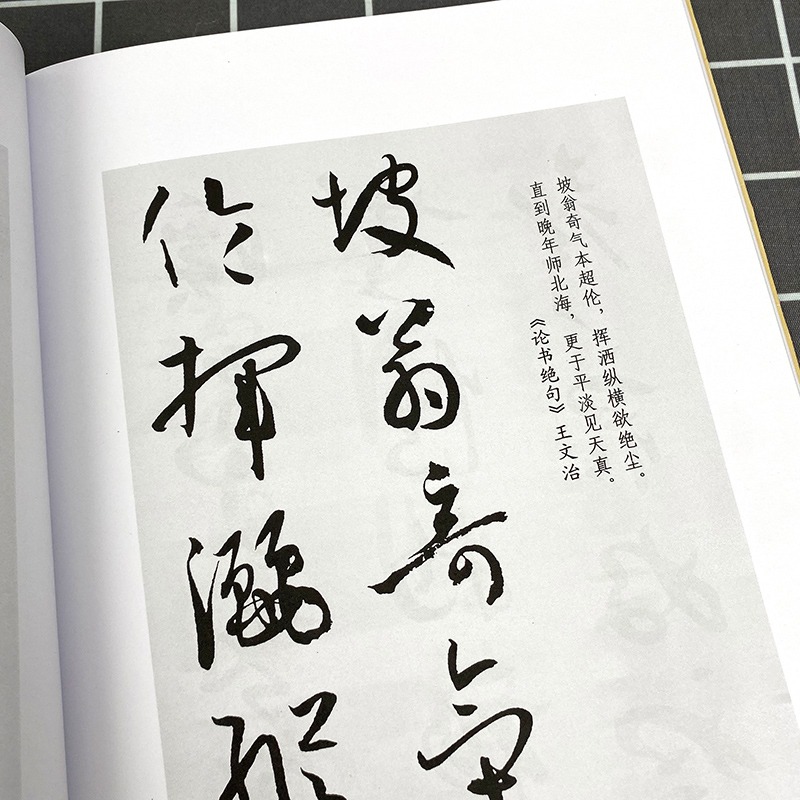 坡翁奇气本超伦，挥洒纵横欲绝尘。
直到晚年师北海，更于平淡见天真。
《论书绝句》王文治
坡翁奇氣
倫揮灑縱